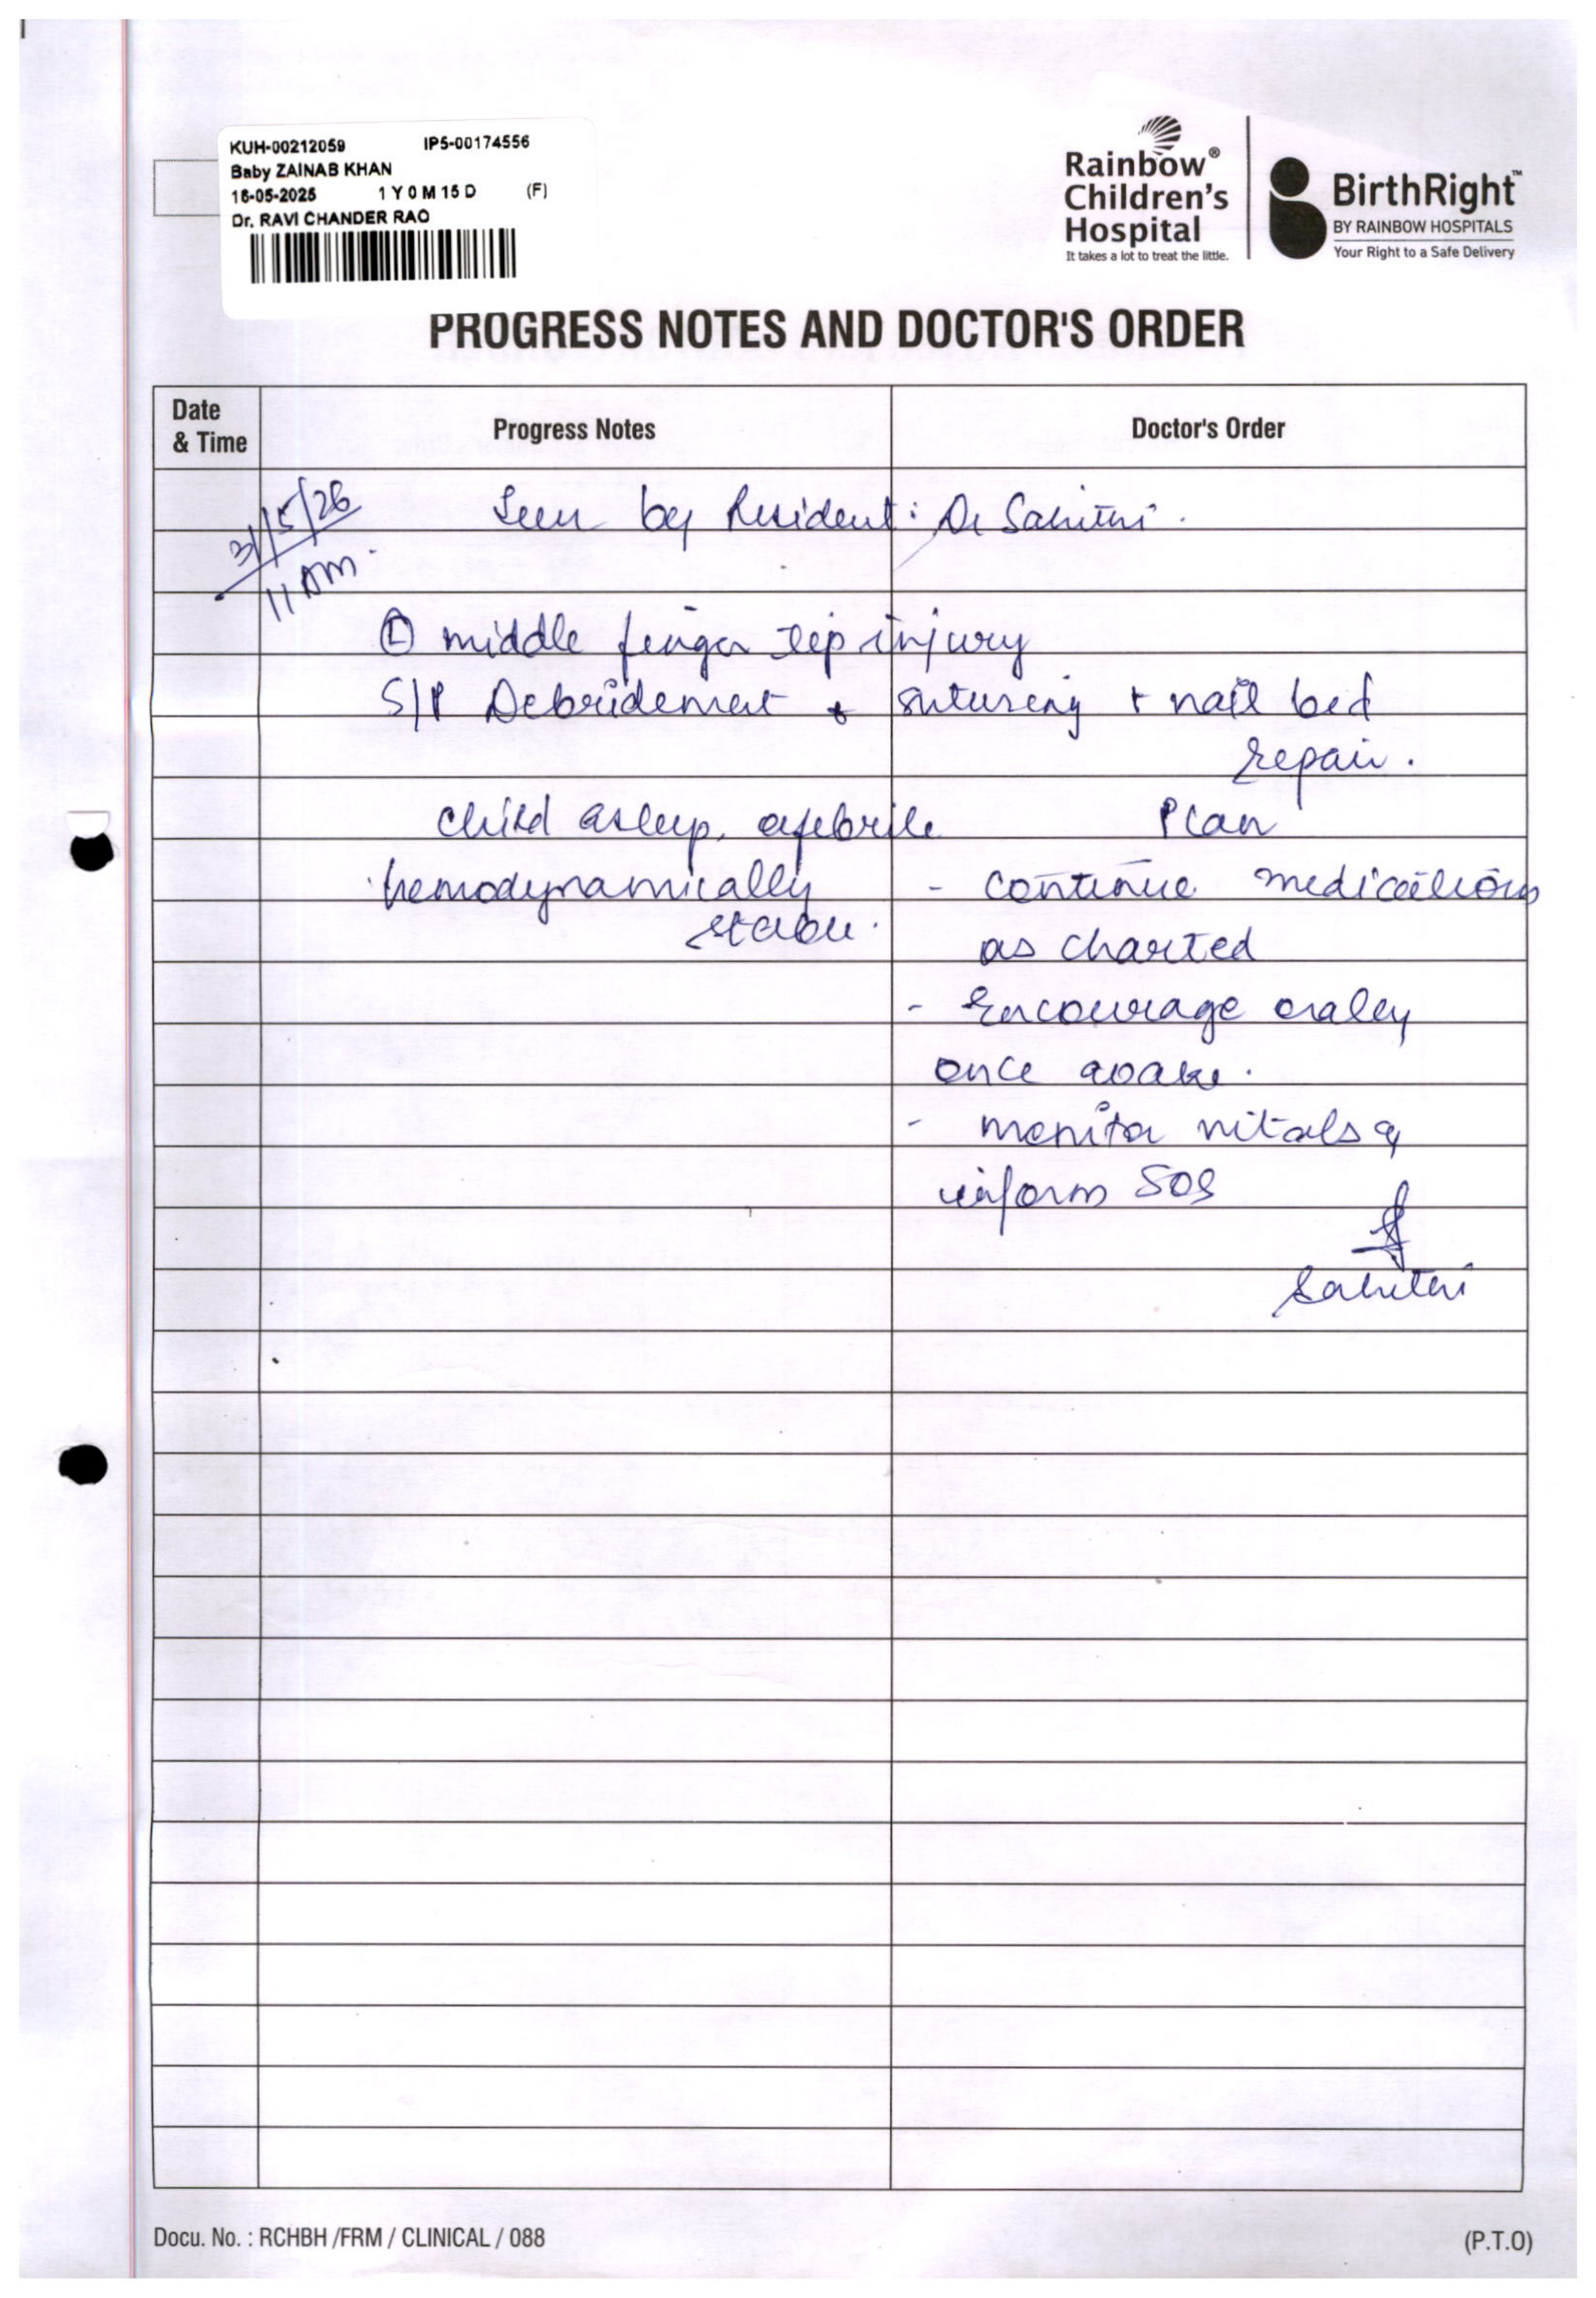 KUH-00212059 IP5-00174556
Baby ZAINAB KHAN
16-05-2025 1 Y 0 M 15 D (F)
Dr. RAVI CHANDER RAO
Rainbow®
Children's
Hospital
It takes a lot to treat the little.
BirthRight™
BY RAINBOW HOSPITALS
Your Right to a Safe Delivery
PROGRESS NOTES AND DOCTOR'S ORDER
Date
& Time
Progress Notes
Doctor's Order
31/5/26
11 AM.
Seen by Resident: Dr Sahithi.
Ⓛ middle finger tip injury
S/P Debridement + suturing + nail bed
repair.
child asleep, afebrile
hemodynamically
stable.
Plan
- continue medications
as charted
- Encourage orally
once awake.
- monitor vitals &
inform SOS
Sahithi
Docu. No. : RCHBH /FRM / CLINICAL / 088
(P.T.O)